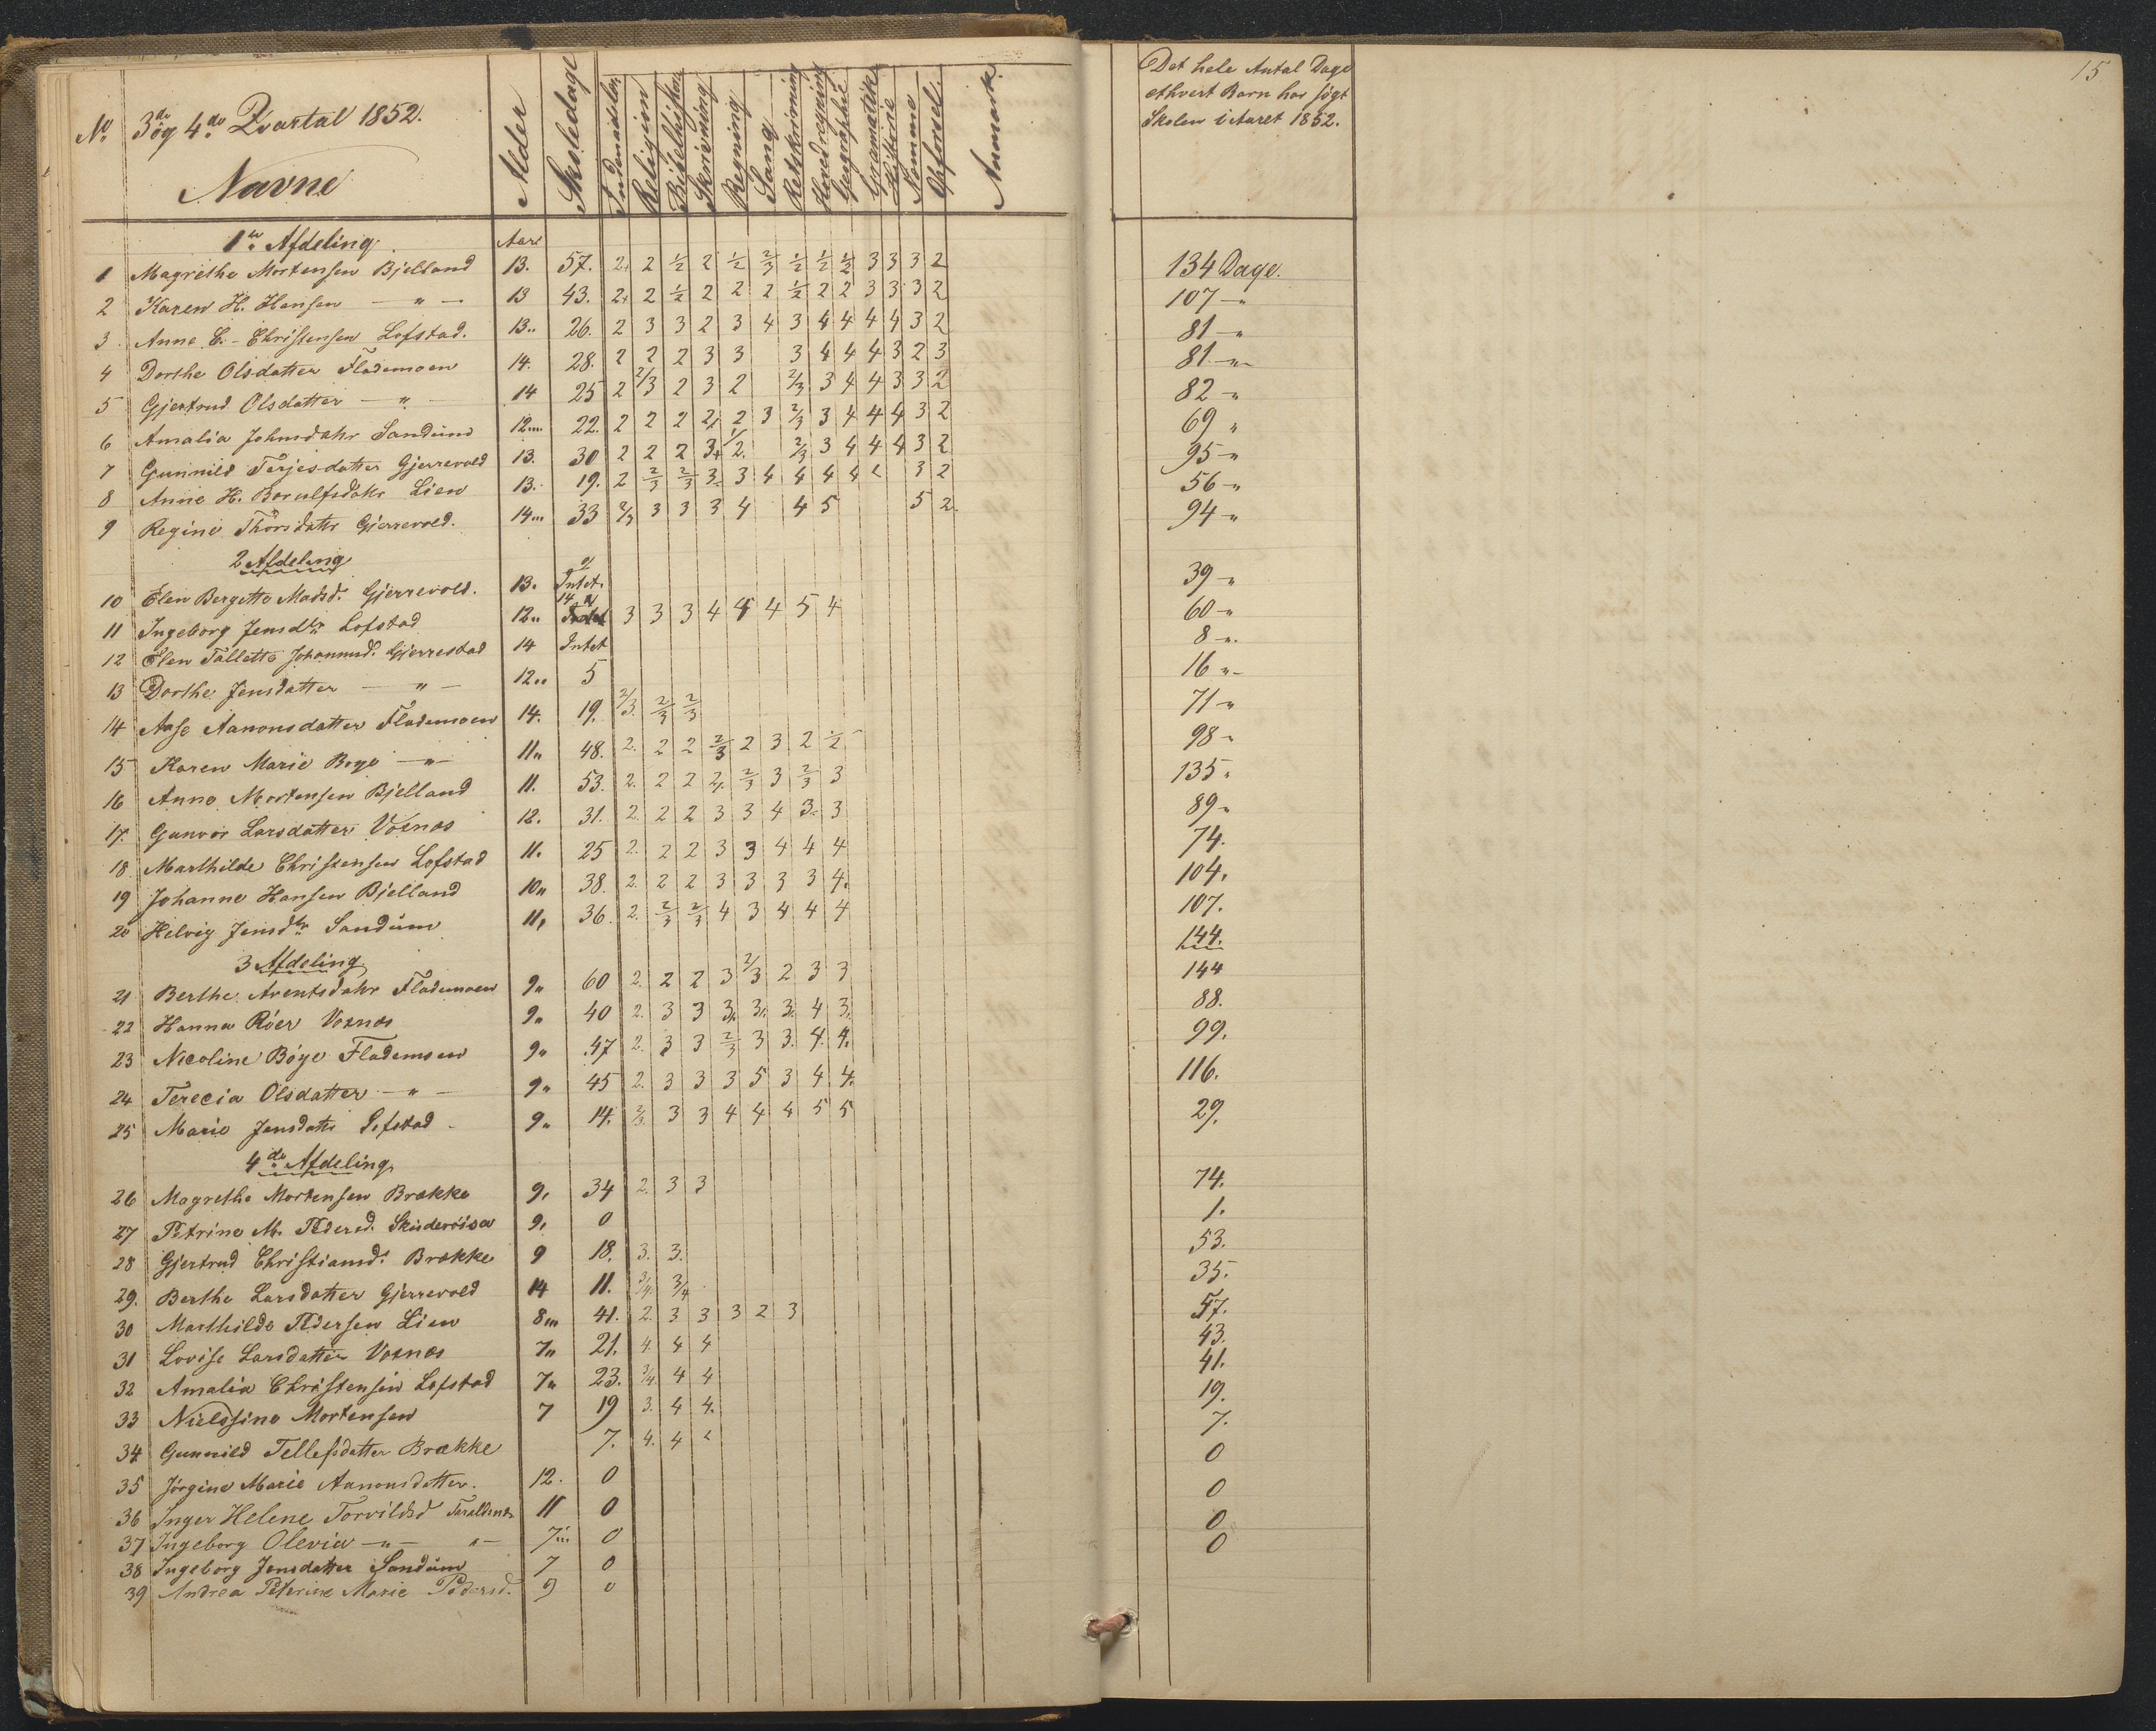 15
No. 3die og 4de Qvartal 1852.
Navne Alder Skoledage Indenadslæs Religion Bibelhistor Skrivning Regning Sang Retskrivning Hovedregning Geographie Gramatikk Historie Opførsel Anmærk.
Det hele Antal Dage
ethvert Barn har søgt
Skolen i Aaret 1852.
1ste Afdeling. Aar
1 Magrethe Mortensen Bjelland 13. 57. 2 2 1/2 2 1/2 2/3 1/2 1/2 1/2 3 3 3 2 134 Dage.
2 Karen H. Hansen — " — 13 43. 2 2 1/2 2 2 2 1/2 2 2 3 3 3 2 107 — "
3 Anne C. Christensen Lofstad. 13.. 26. 2 3 3 2 3 4 3 4 4 4 4 3 2 81 — "
4 Dorthe Olsdatter Flademoen 14. 28. 2 2 2 3 3 3 4 4 4 3 2 3 81 — "
5 Gjertrud Olsdatter — " — 14 25 2 2/3 2 3 2 2/3 3 4 4 3 3 2 82 — "
6 Amalia Johnsdatr Sandum 12.... 22. 2 2 2 2 2 3 2/3 3 4 4 4 3 2 69 "
7 Gunnild Terjesdatter Gjerrevold 13. 30 2 2 2 3 1/2. 2/3 3 4 4 4 3 2 95 — "
8 Anne H. Borulfsdatr Lien 13. 19. 2 2/3 2/3 3 3 4 4 4 4 3 2 56 — "
9 Regine Thorsdatr Gjerrevold. 14... 33 2/3 3 3 3 4 4 5 5 2. 94 — "
2 Afdeling
10 Elen Bergette Madsd. Gjerrevold. 13. Intet. 39 — "
11 Ingeborg Jensdtr Lofstad 12.. 14 3 3 3 4 4 4 5 4 60 — "
12 Elen Tallette Johannesd. Gjerrestad 14 Intet 8 — "
13 Dorthe Jensdatter — " — 12.. 5 16 " —
14 Aase Aanonsdatter Flademoen 14. 19. 2/3. 2/3 2/3 71 — "
15 Karen Marie Boye — " — 11.. 48. 2. 2 2 2/3 2 3 2 1/2 98 "
16 Anne Mortensen Bjelland 11. 53. 2. 2 2 2 2/3 3 2/3 3 135 "
17. Gunvor Larsdatter Vosnæs 12. 31. 2. 2 2 3 3 4 3 3 89 "
18 Marthilde Christensen Lofstad 11. 25 2. 2 2 3 3 4 4 4 74.
19 Johanne Hansen Bjelland 10.. 38. 2. 2 2 3 3 3 3 4. 104.
20 Helvig Jensdtr Sandum 11. 36. 2. 2/3 2/3 4 3 4 4 4 107.
144.
3 Afdeling
21 Berthe Arentsdatr Flademoen 9.. 60 2. 2 2 3 2/3 2 3 3 144
22 Hanna Röer Vosnæs 9.. 40 2. 3 3 3 3 3 4 3 88.
23 Nicoline Böye Flademoen 9.. 47 2. 3 3 2/3 3 3. 4. 4. 99.
24 Terecia Olsdatter — " — 9.. 45 2. 3 3 3 5 3 4 4. 116.
25 Marie Jensdatr Lofstad 9.. 14. 2/3. 3 3 4 4 4 5 5 29.
4de Afdeling
26 Magrethe Mortensen Brække 9. 34 2. 3 3 74.
27 Petrine M. Pedersd. 9. 0 1.
28 Gjertrud Christiansd. Brække 9 18. 3. 3. 53.
29. Berthe Larsdatter Gjerrevold 14 11. 3/4. 3/4 35.
30 Marthilde Pedersen Lien 8... 41. 2. 3 3 3 2 3 57.
31 Lovise Larsdatter Vosnæs 7.. 21. 4. 4 4 43.
32 Amalia Christensen Lofstad 7.. 23. 3/4. 4 4 41.
33 Nielssine Mortensen 7 19 3. 4 4. 19.
34 Gunnild Tellefsdatter Brække 7. 4. 4 7.
35 Jörgine Marie Aanonsdatter. 12. 0 0
36 Inger Helene Torvildsd 11 0 0
37 Ingeborg Olevia — " — " — 7... 0 0
38 Ingeborg Jensdatter Sandum 7 0 0
39 Andrea Peterine Marie Pedersd. 9 0